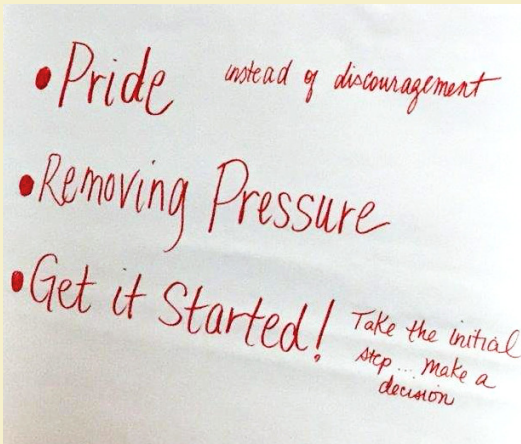 •Pride instead of discouragement
•Removing Pressure
•Get it Started! Take the initial
step... Make a
decision